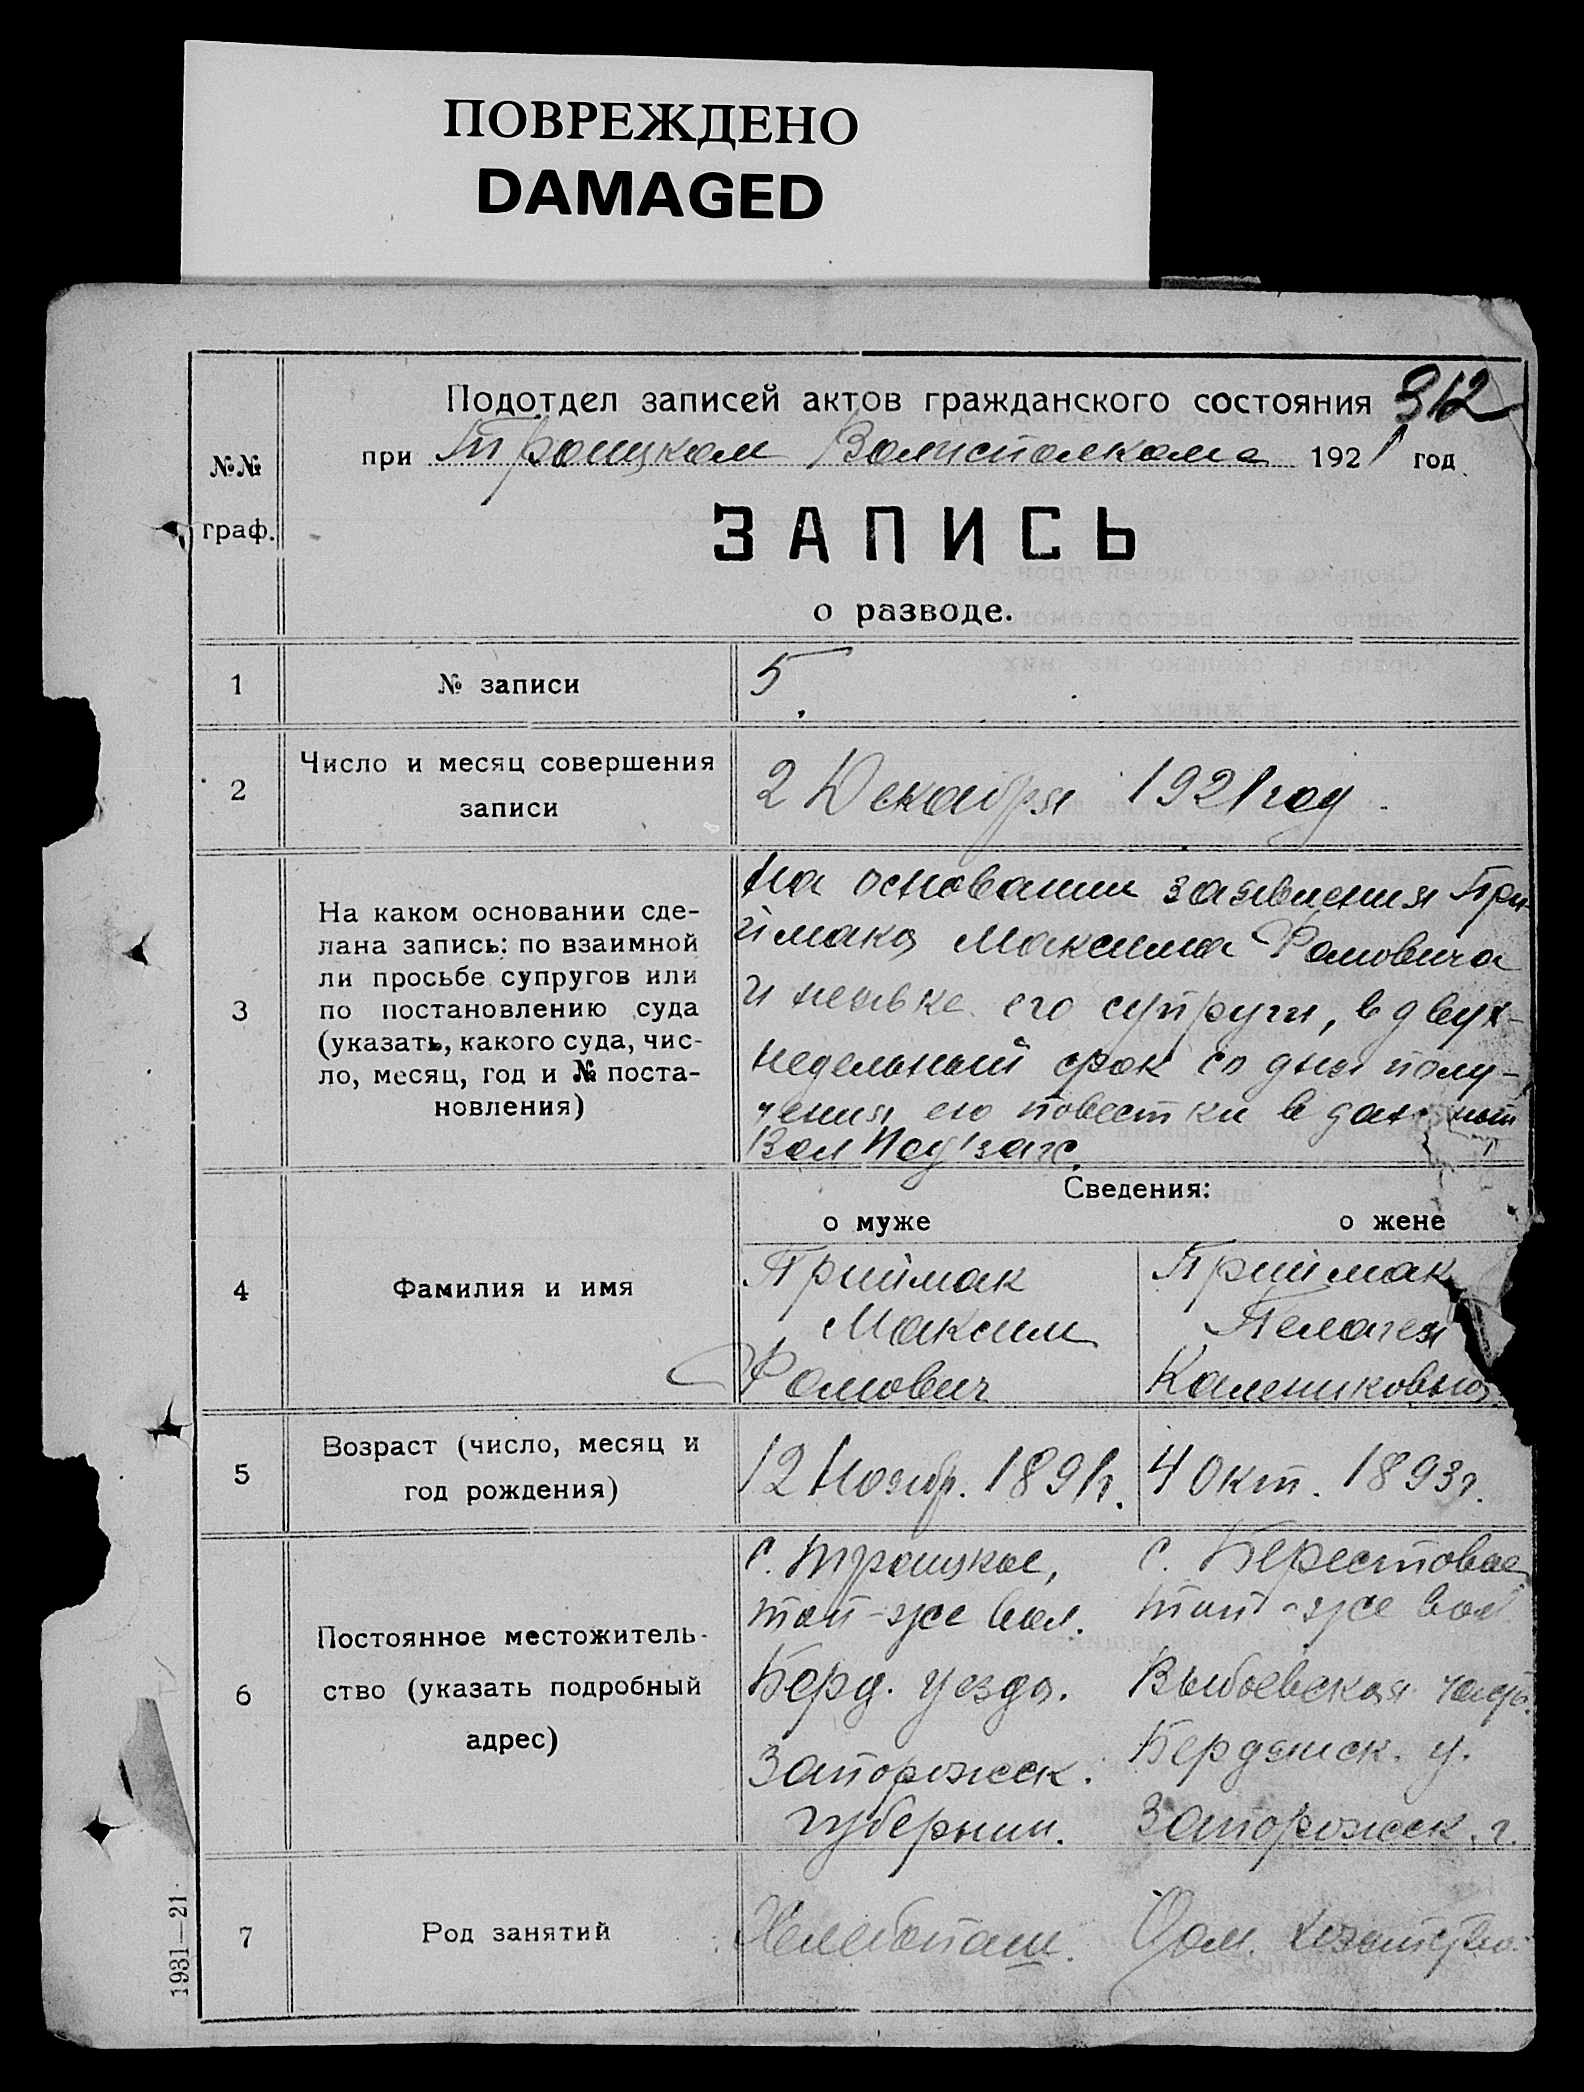 ПОВРЕЖДЕНО
DAMAGED
Подотдел записей актов гражданского состояния 312
при Троицком Волисполкоме 1921 год
№№ граф.
ЗАПИСЬ
о разводе.
1 № записи 5
2 Число и месяц совершения записи
2 Декабря 1921 год
3 На каком основании сде-
лана запись: по взаимной
ли просьбе супругов или
по постановлению суда
(указать, какого суда, чис-
ло, месяц, год и № поста-
новления)
На основании заявления При
ймака Максима Фомовича
и неявке его супруги, в двух-
недельный срок со дня полу-
чения ею повестки в
Сведения:
о муже о жене
4 Фамилия и имя
Приймак
Максим
Фомович
Приймак
Пелагея
Калениковна
5 Возраст (число, месяц и
год рождения)
12 Ноябр. 1891г. 4 Окт. 1893г.
6 Постоянное местожитель-
ство (указать подробный
адрес)
с. Троицкое,
той-же вол.
Берд. уезда.
Запорожск.
губернии.
с. Берестовое
той-же вол
Бердянск. у.
Запорожск. г.
7 Род занятий
Хлебопаш. Дом.
1931—21